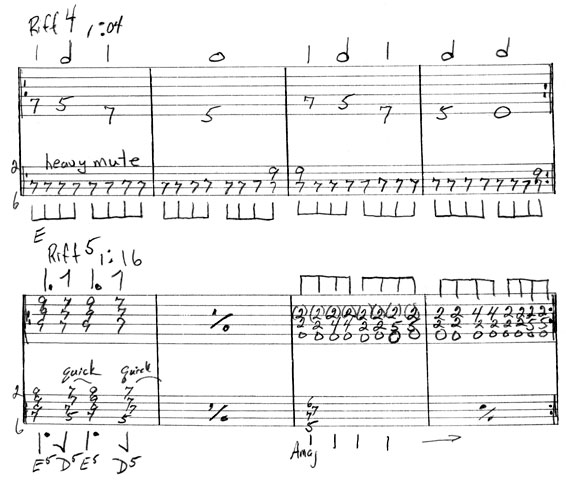 Riff 4 1:04
7 5 7 5 7 5 7 5 0
2 heavy mute 9 9 9
7 7 7 7 7 7 7 7 7 7 7 7 7 7 7 7 7 7 7 7 7 7 7 7 7 7 7 7 7
6
E
Riff 5 1:16
9 7 9 7 (2) (2) (2) (2) (2) (2) (2) (2) 2 2 4 4 2 2 2 2
9 7 9 7 2 2 4 4 2 2 5 5 2 2 4 4 2 2 5 5
7 7 0 0 0 0 0 0 0 0 0 0 0 0 0 0 0 0
quick quick
2 9 7 9 7 6
9 7 9 7 7
7 5 7 5 5
6
E5 D5 E5 D5 Amaj